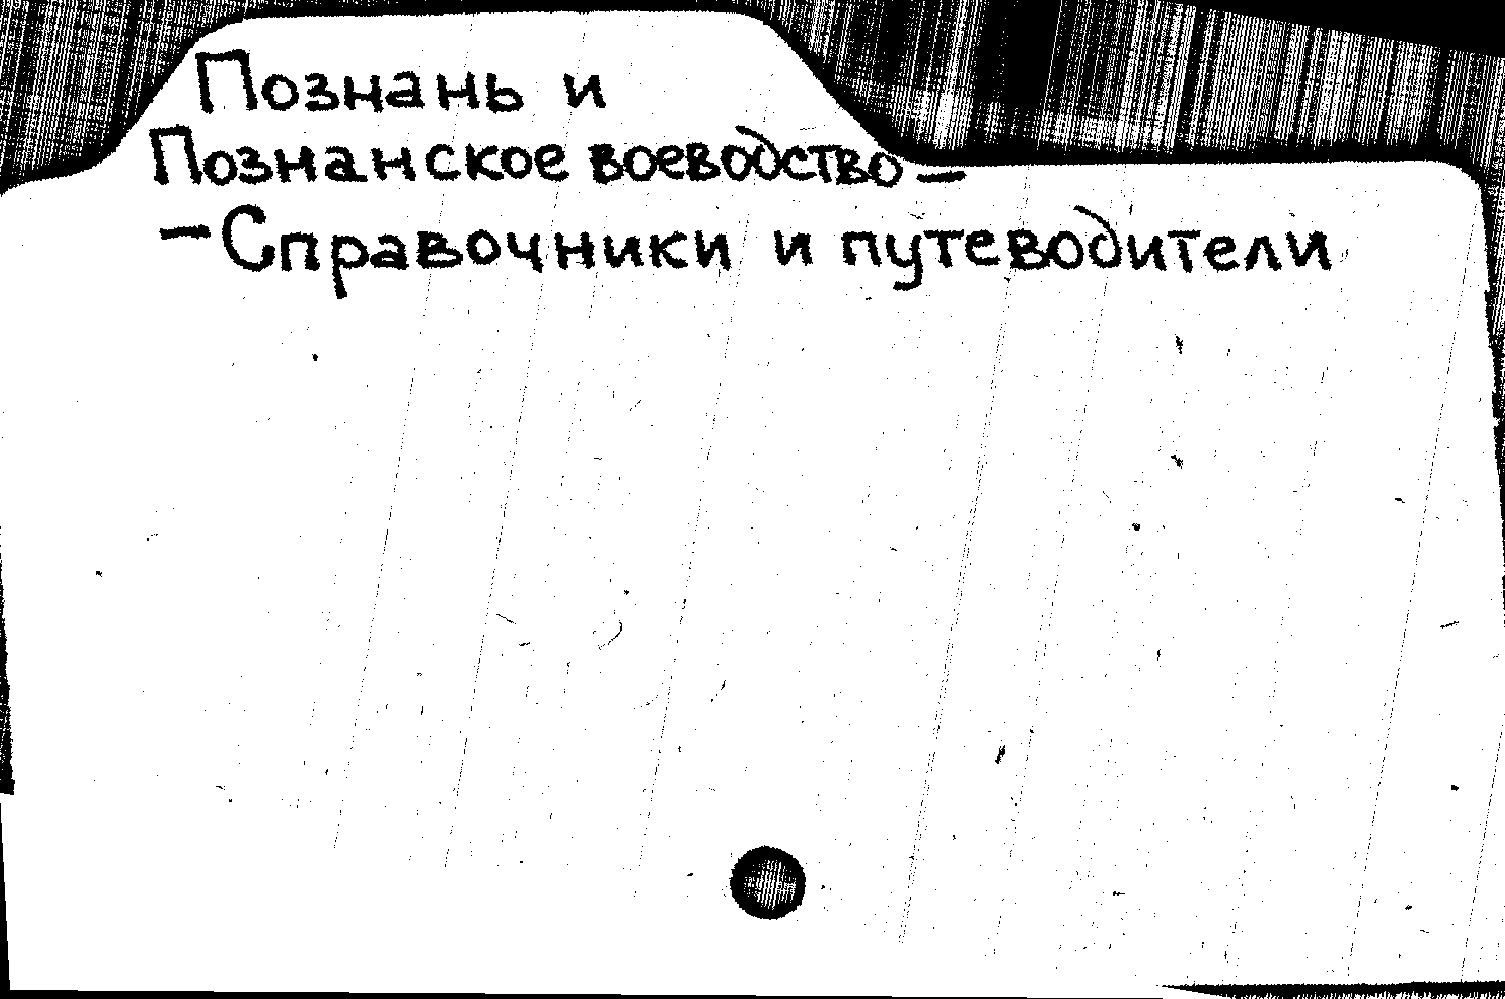 Познань и
Познанское воеводство –
– Справочники и путеводители